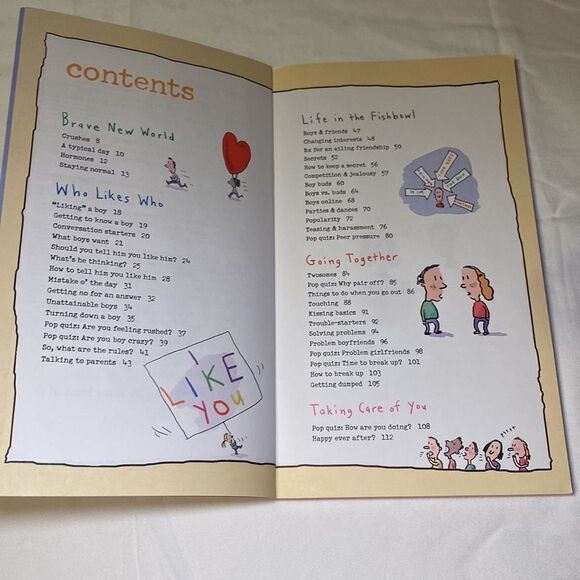 contents
Brave New World
Crushes 8
A typical day 10
Hormones 12
Staying normal 13
Who Likes Who
"Liking" a boy 18
Getting to know a boy 19
Conversation starters 20
What boys want 21
Should you tell him you like him? 24
What's he thinking? 25
How to tell him you like him 28
Mistake o' the day 31
Getting no for an answer 32
Unattainable boys 34
Turning down a boy 35
Pop quiz: Are you feeling rushed? 37
Pop quiz: Are you boy crazy? 39
So, what are the rules? 41
Talking to parents 43
I
LIKE
YOU
Life in the Fishbowl
Boys & friends 47
Changing interests 48
Rx for an ailing friendship 50
Secrets 52
How to keep a secret 56
Competition & jealousy 57
Boy buds 60
Boys vs. buds 64
Boys online 68
Parties & dances 70
Popularity 72
Teasing & harassment 76
Pop quiz: Peer pressure 80
Going Together
Twosomes 84
Pop quiz: Why pair off? 85
Things to do when you go out 86
Touching 88
Kissing basics 91
Trouble-starters 92
Solving problems 94
Problem boyfriends 96
Pop quiz: Problem girlfriends 98
Pop quiz: Time to break up? 101
How to break up 103
Getting dumped 105
Taking Care of You
Pop quiz: How are you doing? 108
Happy ever after? 112